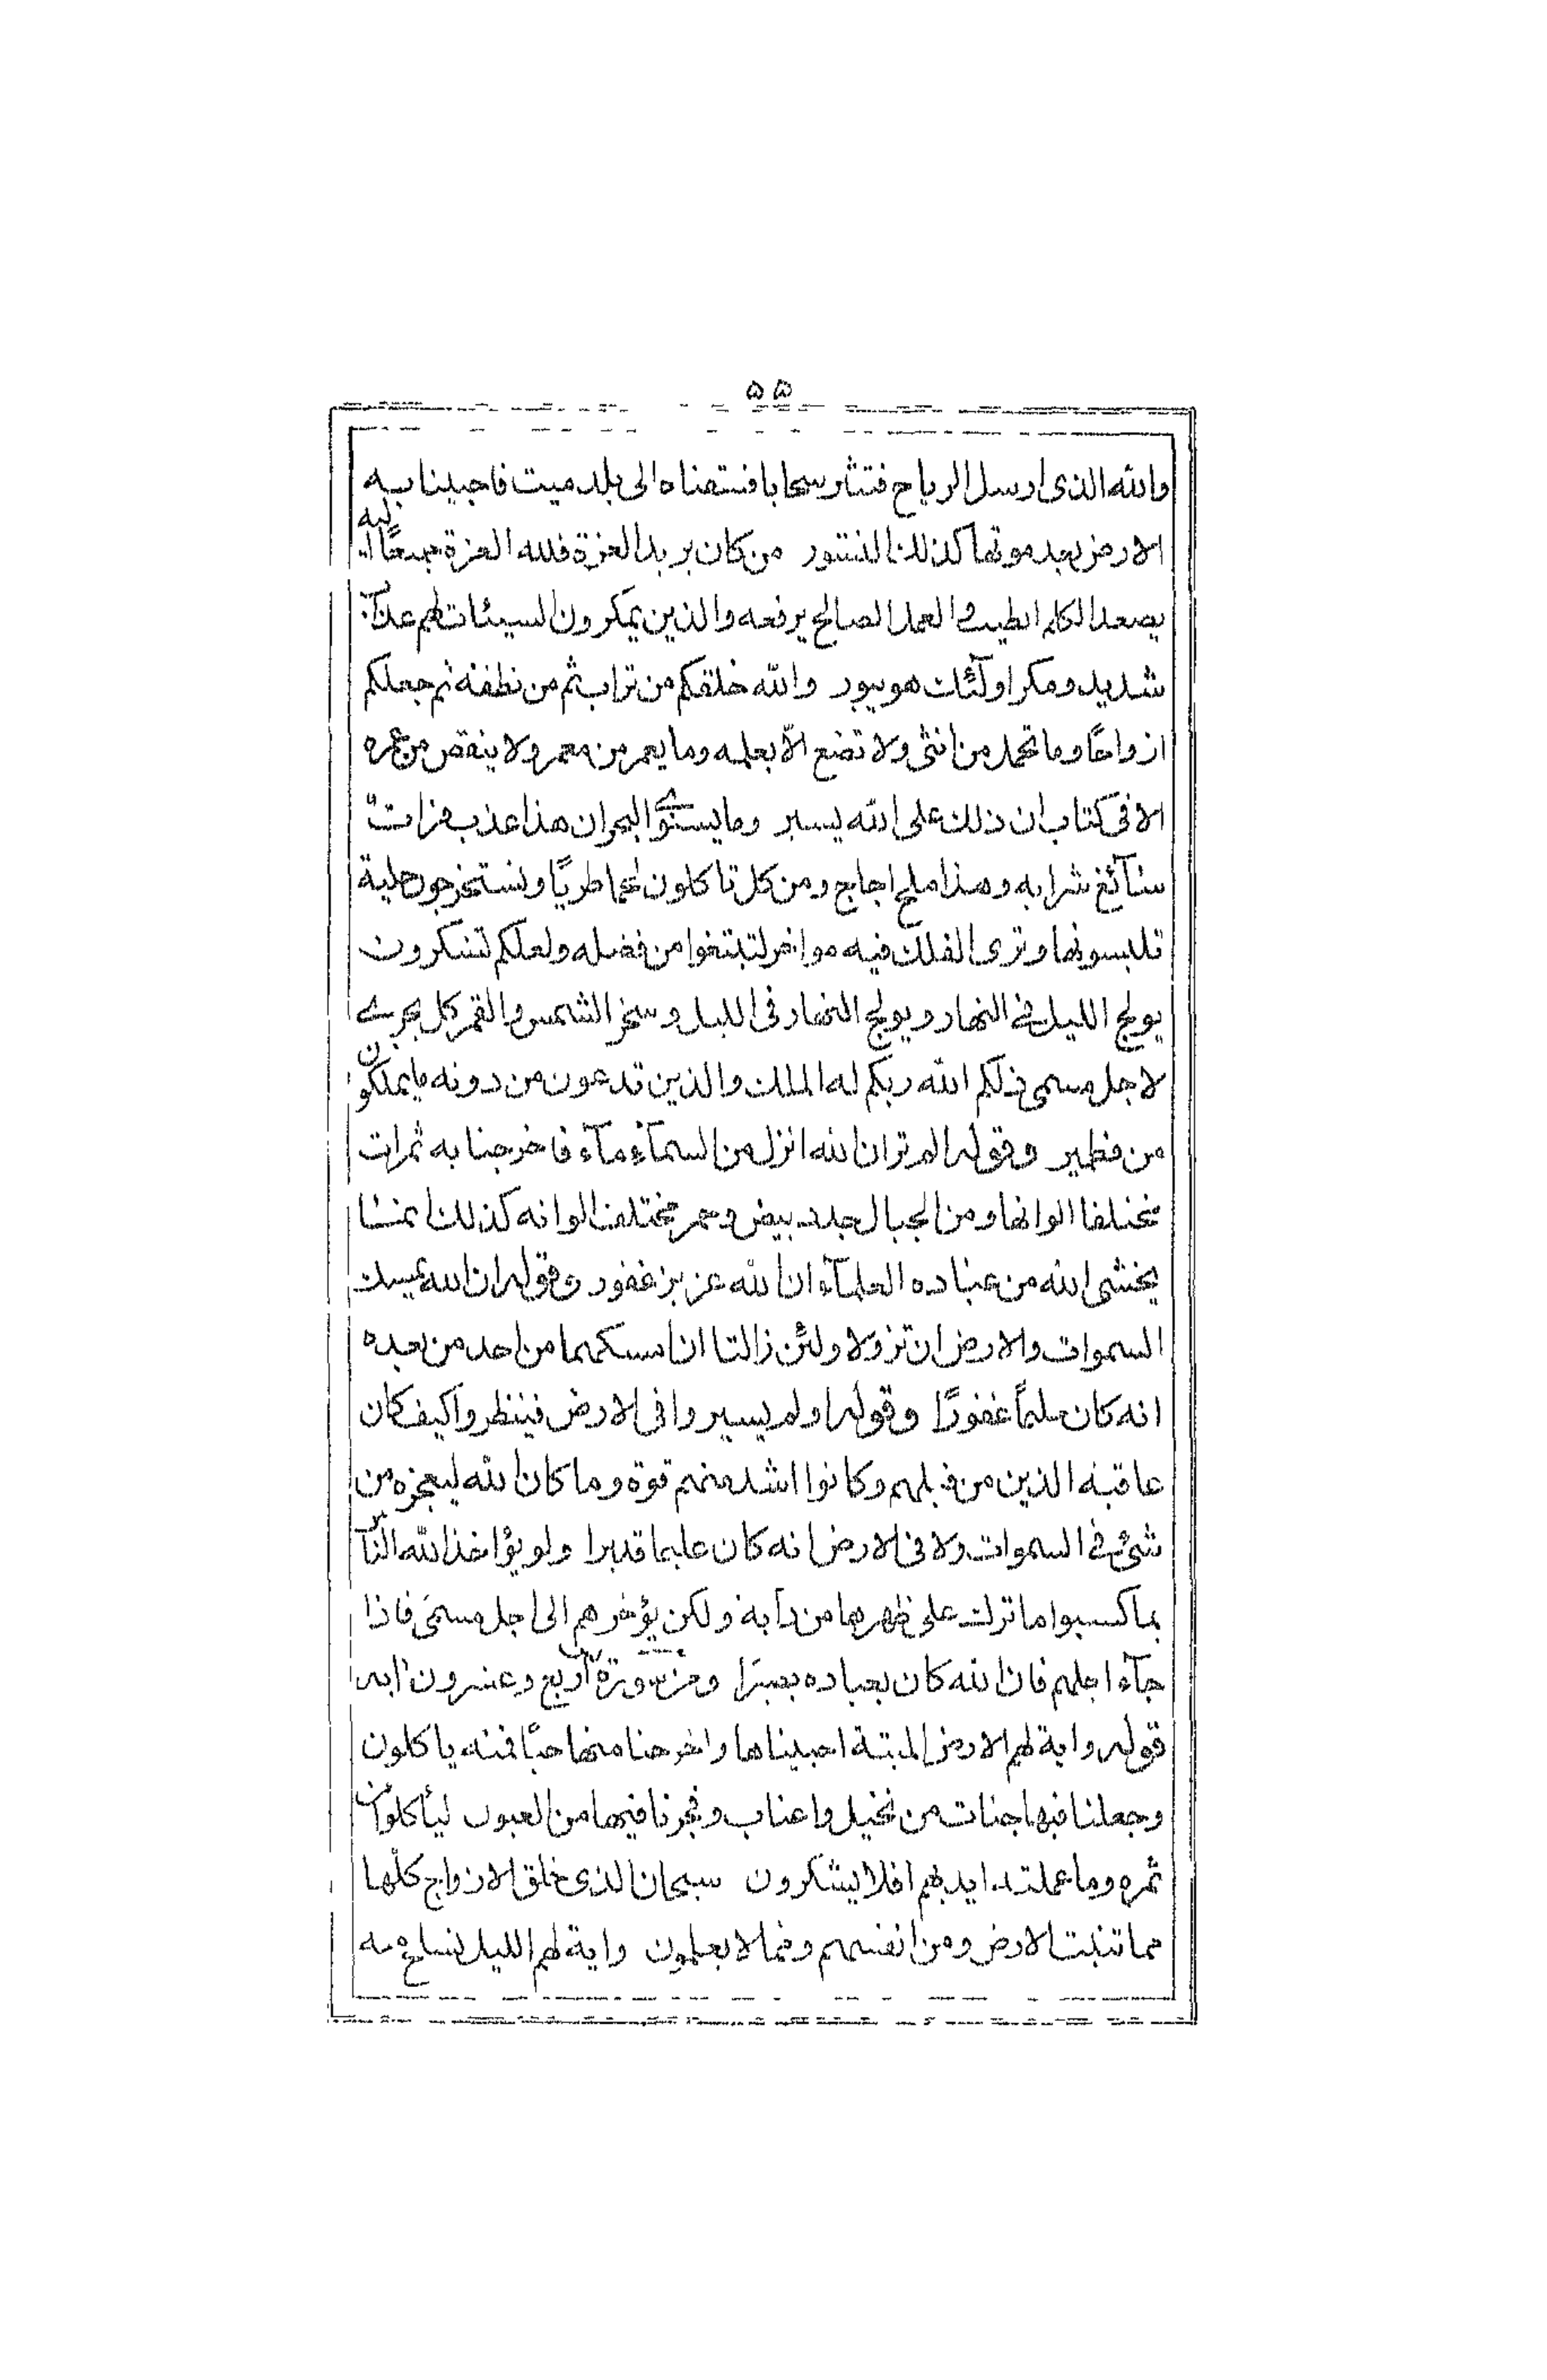 ٥٥
والله الذى ارسل الرياح فتثار سحابا فستقناه الى بلد ميت فاحيينا به
الارض بعد موتها كذلك النشور من كان يريد العزة فلله العزة جميعًا اليه
يصعد الكلم الطيب والعمل الصالح يرفعه والذين يمكرون السيئات لهم عذاب
شديد ومكر اولٓئك هو يبور والله خلقكم من تراب ثم من نطفة ثم جعلكم
ازواجًا وما تحمل من انثى ولا تضع الّا بعلمه وما يعمر من معمر ولا ينقص من عمره
الا فى كتاب ان ذلك على الله يسير وما يستوى البحران هذا عذب فرات
سآئغ شرابه وهذا ملح اجاج ومن كل تاكلون لحما طريًا وتستخرجون حلية
تلبسونها وترى الفلك فيه مواخر لتبتغوا من فضله ولعلكم تشكرون
يولج الليل فى النهار ويولج النهار فى الليل وسخر الشمس والقمر كل يجرى
لاجل مسمى ذلكم الله ربكم له الملك والذين تدعون من دونه ما يملكون
من قطمير وقوله الم تر ان الله انزل من السمآء مآء فاخرجنا به ثمرات
مختلفا الوانها ومن الجبال جدد بيض وحمر مختلف الوانه كذلك انما
يخشى الله من عباده العلمآء ان الله عزيز غفور وقوله ان الله يمسك
السموات والارض ان تزولا ولئن زالتا ان امسكهما من احد من بعده
انه كان حليمًا غفورًا وقوله اولم يسيروا فى الارض فينظروا كيف كان
عاقبة الذين من قبلهم وكانوا اشد منهم قوة وما كان الله ليعجزه من
شئ فى السموات ولا فى الارض انه كان عليما قديرا ولو يؤاخذ الله النّاس
بما كسبوا ما ترك على ظهرها من دآبة ولكن يؤخرهم الى اجل مسمىً فاذا
جآء اجلهم فان الله كان بعباده بصيرًا ومن سورة اربع وعشرون اية
قوله واية لهم الارض الميتة احييناها واخرجنا منها حبًا فمنه ياكلون
وجعلنا فيها جنات من نخيل واعناب وفجرنا فيها من العيون ليأكلوا من
ثمره وما عملته ايديهم افلا يشكرون سبحان الذى خلق الازواج كلّها
مما تنبت الارض ومن انفسهم ومما لا يعلمون واية لهم الليل نسلخ منه